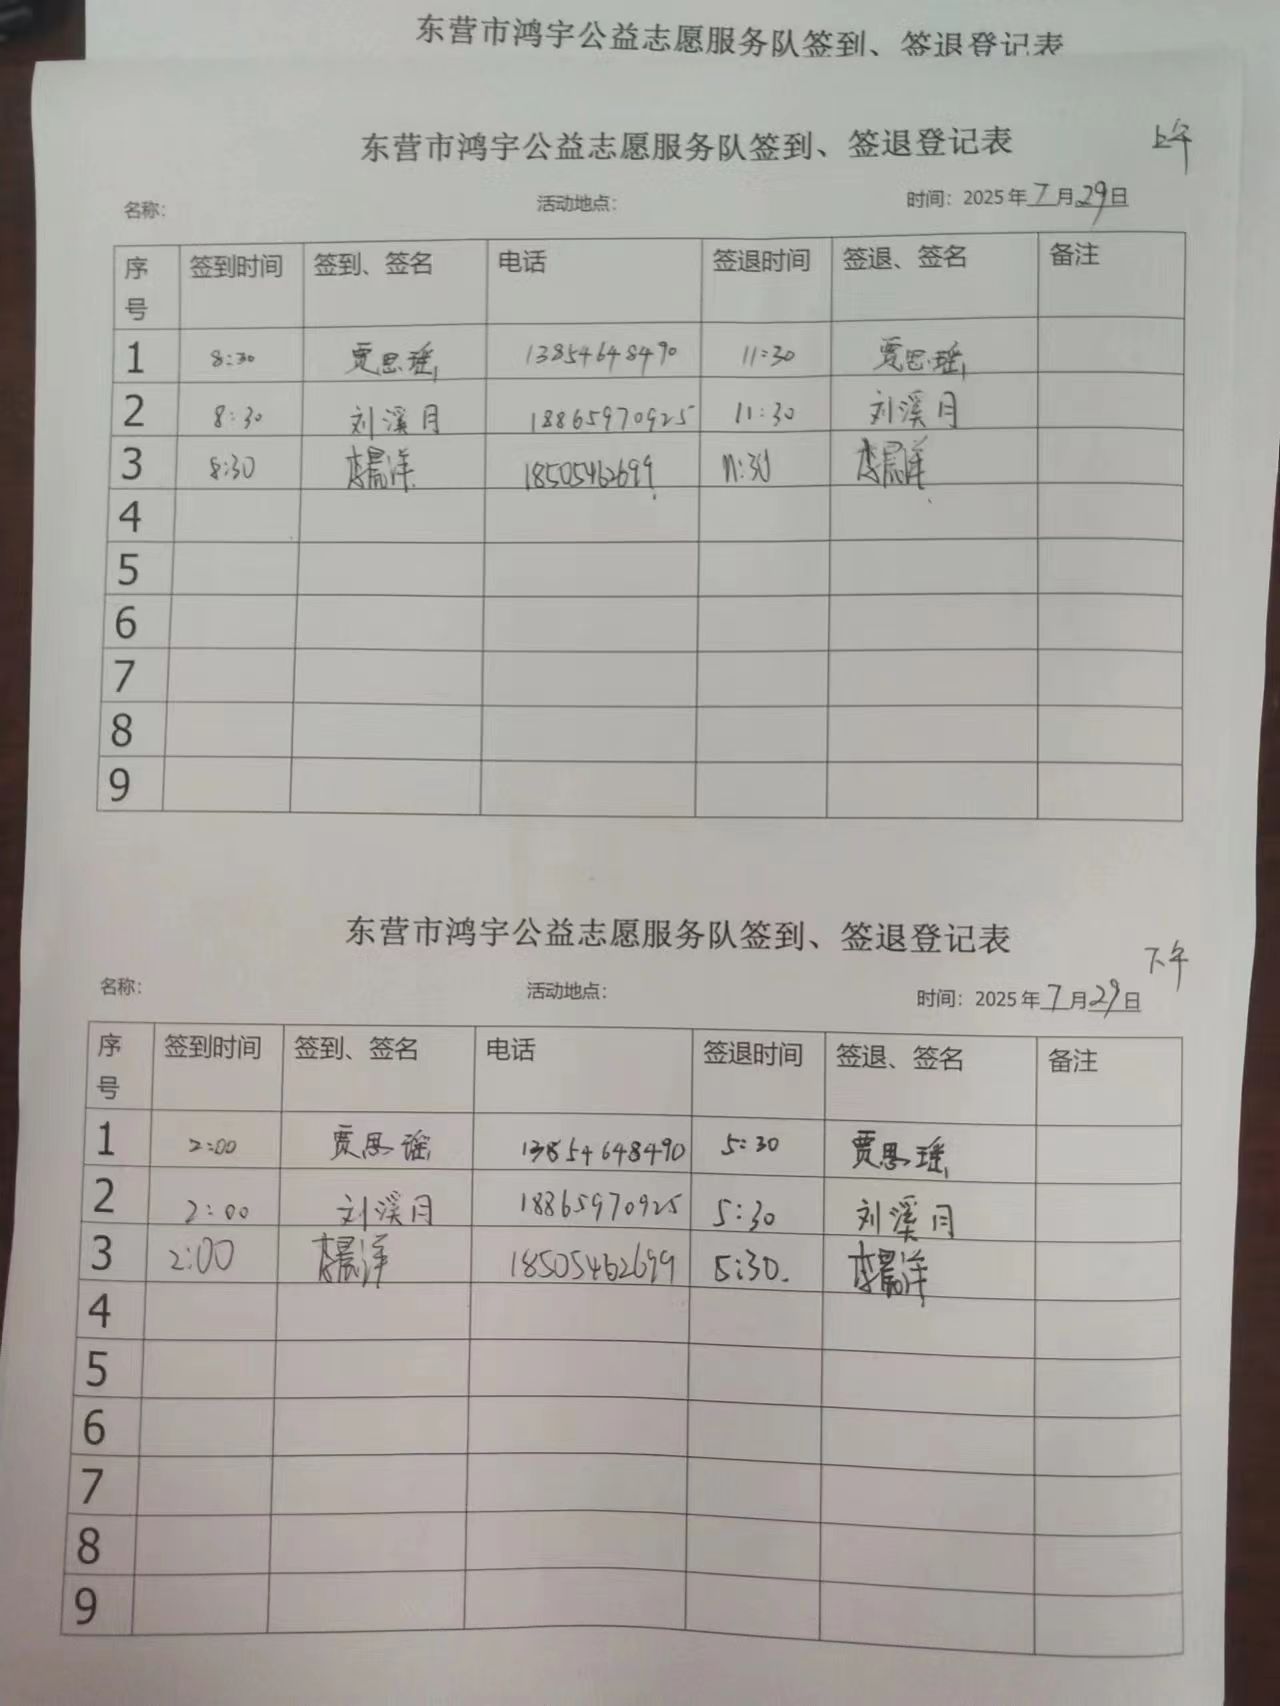 东营市鸿宇公益志愿服务队签到、签退登记表
东营市鸿宇公益志愿服务队签到、签退登记表 上午
名称： 活动地点： 时间：2025年7月29日
序号 签到时间 签到、签名 电话 签退时间 签退、签名 备注
1 8:30 贾思瑶 13854648490 11:30 贾思瑶
2 8:30 刘溪月 18865970925 11:30 刘溪月
3 8:30 李晨洋 18505462699 11:30 李晨洋
4
5
6
7
8
9
东营市鸿宇公益志愿服务队签到、签退登记表 下午
名称： 活动地点： 时间：2025年7月29日
序号 签到时间 签到、签名 电话 签退时间 签退、签名 备注
1 2:00 贾思瑶 13854648490 5:30 贾思瑶
2 2:00 刘溪月 18865970925 5:30 刘溪月
3 2:00 李晨洋 18505462699 5:30. 李晨洋
4
5
6
7
8
9